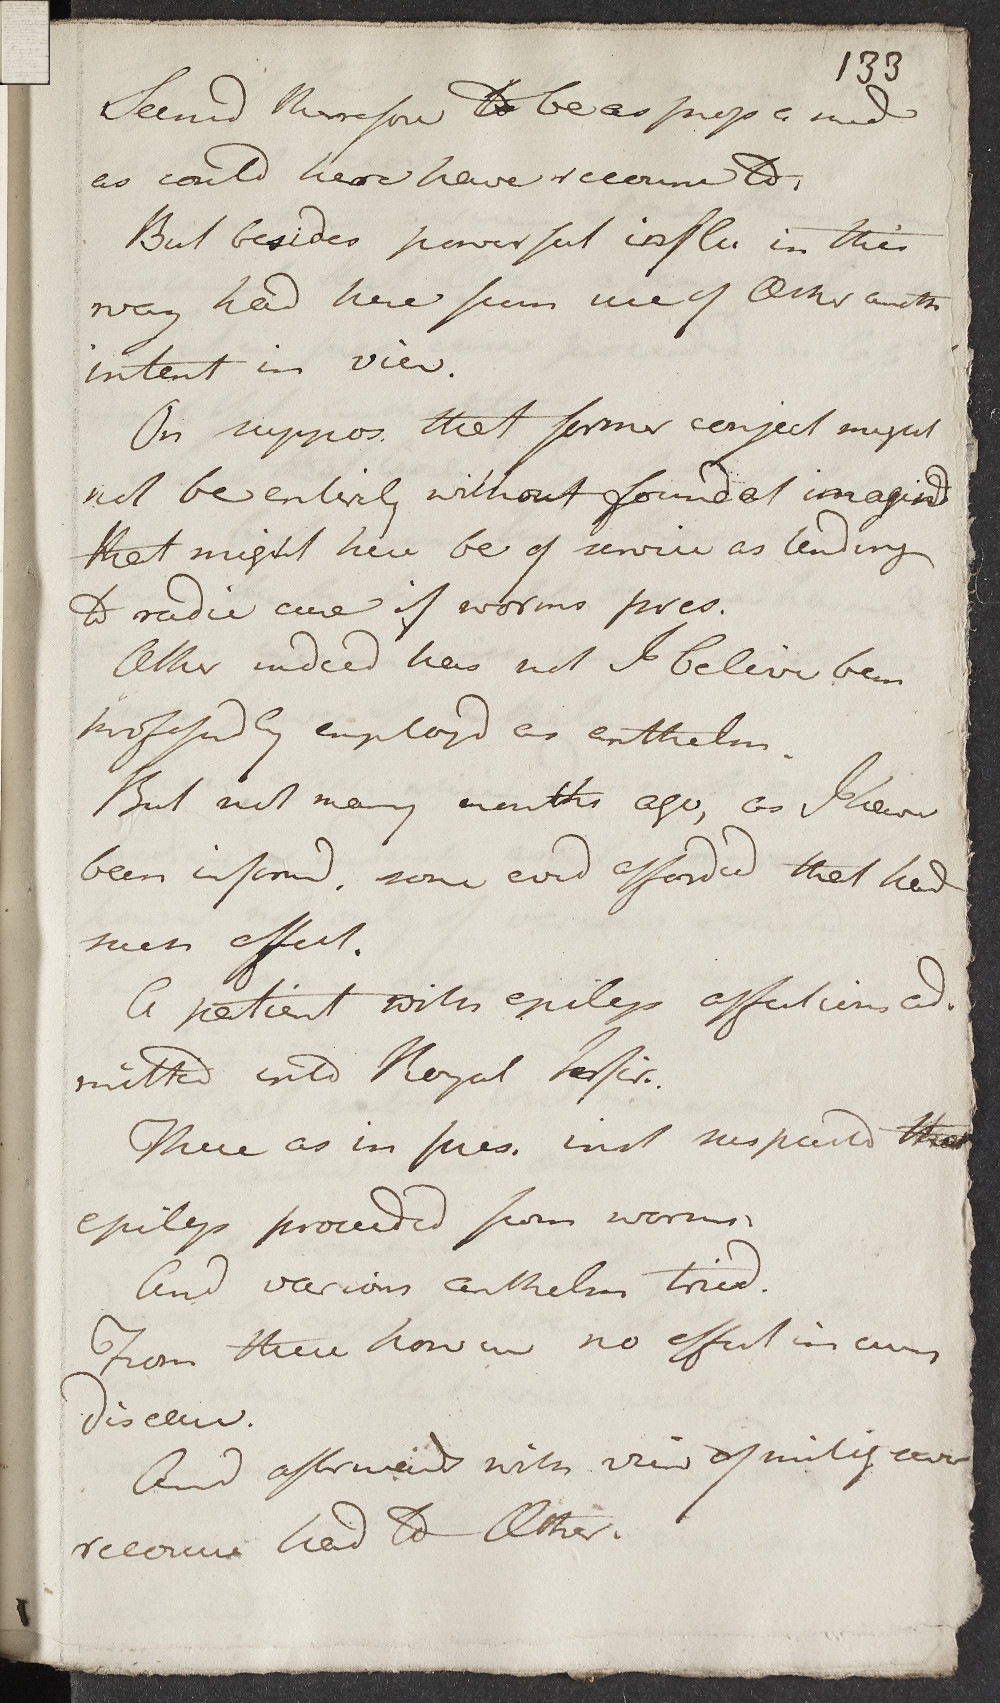 133
Seemd therefore to be as prop a med
as could here have recourse to.
But besides powerful influ in this
way had here from use of Æther anoth
intent in view.
On suppos. that former conject might
not be entirely without foundat imagind
that might here be of service as tending
to radic cure if worms pres.
Æther indeed has not I believe been
professedly employd as anthelm.
But not many months ago, as I have
been informd, some evid afforded that had
such effect.
A patient with epilep affections ad-
mitted into Royal Infir.
There as in pres. inst suspected that
epilep proceeded from worms.
And various anthelm tried.
From these however no effect in curing
disease.
And afterwards with view of mitig
recourse had to Æther.